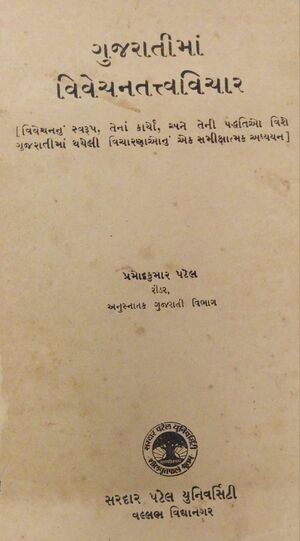 ગુજરાતીમાં
વિવેચનતત્ત્વવિચાર
[ વિવેચનનું સ્વરૂપ, તેનાં કાર્યો, અને તેની પદ્ધતિઓ વિશે
ગુજરાતીમાં થયેલી વિચારણાઓનું એક સમીક્ષાત્મક અધ્યયન ]
પ્રમોદકુમાર પટેલ
રીડર,
અનુસ્નાતક ગુજરાતી વિભાગ
સરદાર પટેલ યુનિવર્સિટી
સરદાર પટેલ યુનિવર્સિટી
વલ્લભ વિદ્યાનગર